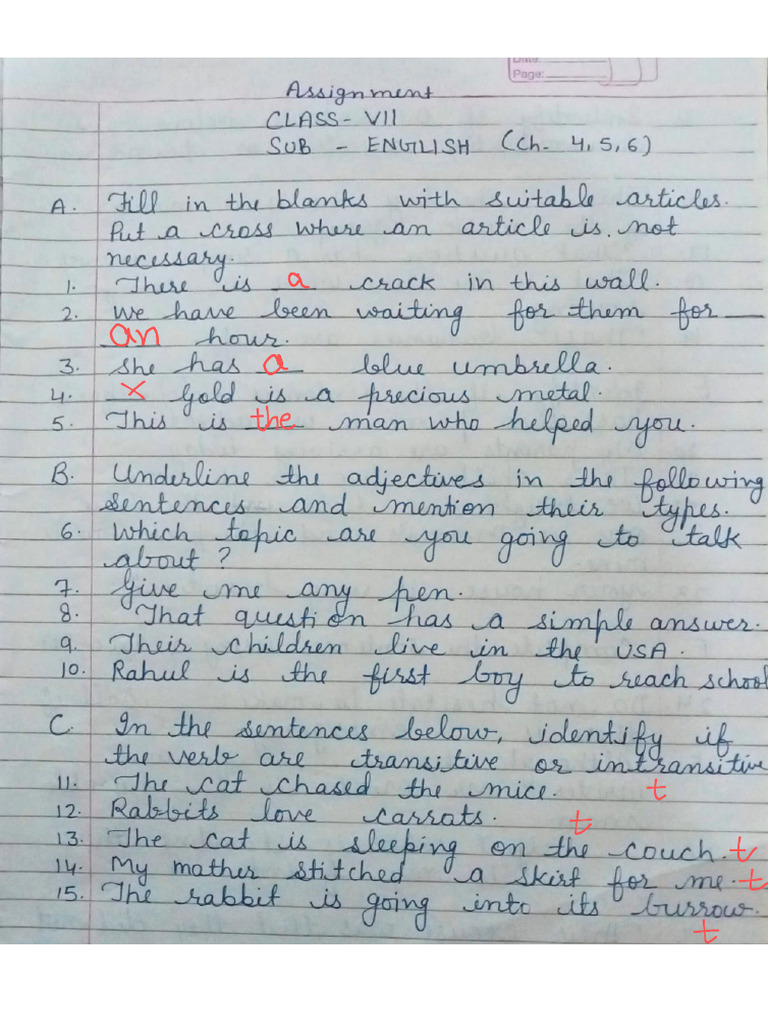 Date:
Page:
Assignment
CLASS- VII
SUB - ENGLISH (Ch. 4, 5, 6)
A. Fill in the blanks with suitable articles.
Put a cross where an article is not
necessary.
1. There is a crack in this wall.
2. We have been waiting for them for
an hour.
3. She has a blue umbrella.
4. x Gold is a precious metal.
5. This is the man who helped you.
B. Underline the adjectives in the following
sentences and mention their types.
6. Which topic are you going to talk
about?
7. Give me any pen.
8. That question has a simple answer.
9. Their children live in the USA.
10. Rahul is the first boy to reach school
C. In the sentences below, identify if
the verb are transitive or intransitive
11. The cat chased the mice. t
12. Rabbits love carrats. t
13. The cat is sleeping on the couch. t
14. My mother stitched a skirt for me. t
15. The rabbit is going into its burrow.
t